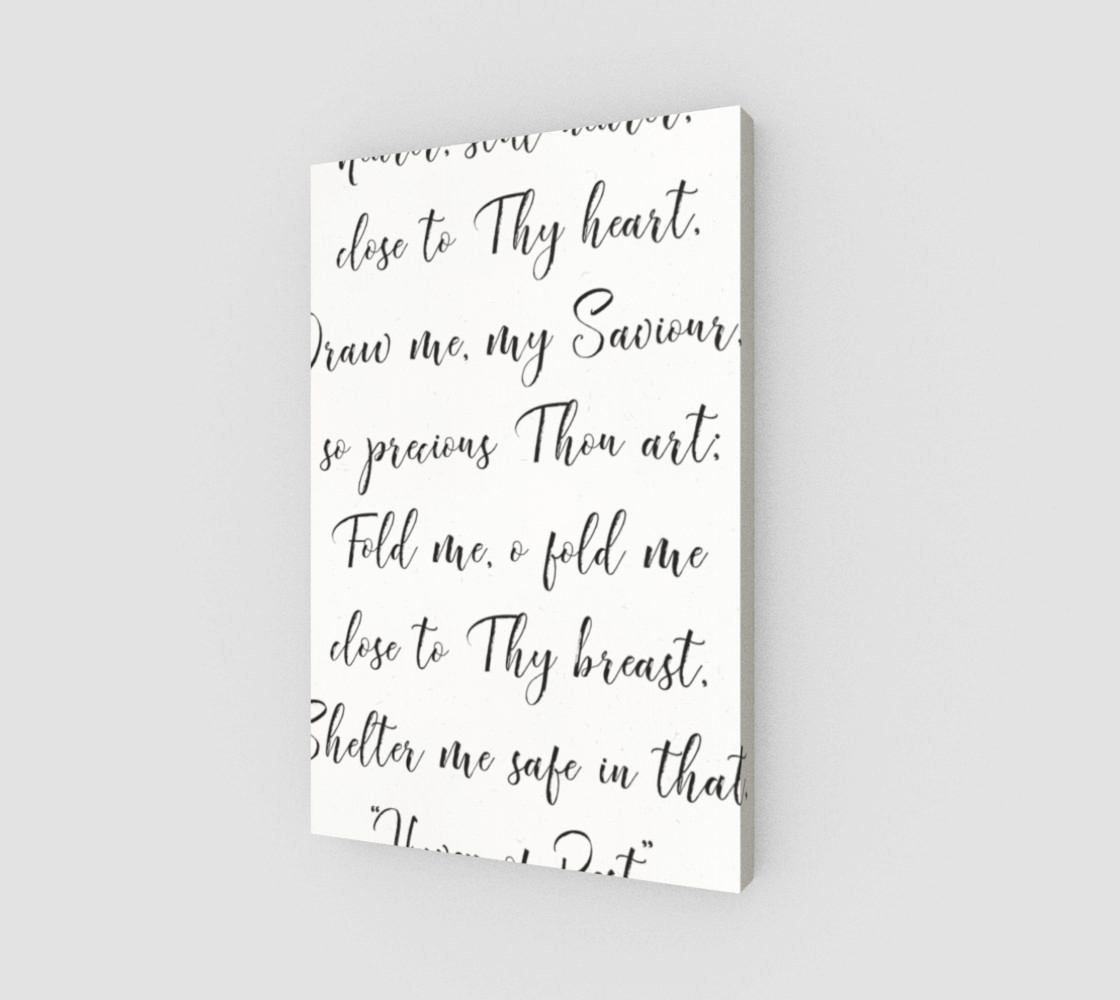 nearer, still nearer,
close to Thy heart,
Draw me, my Saviour,
so precious Thou art;
Fold me, o fold me
close to Thy breast,
Shelter me safe in that,
"Haven of Rest"